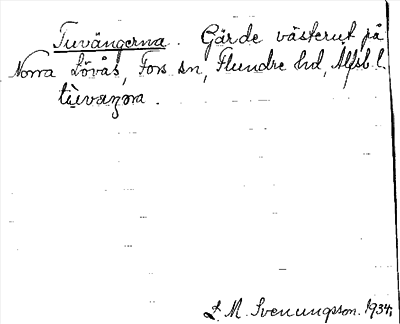 Tuvängerna. Gärde västerut på
Norra Lövås, Fors sn, Flundre hd, Älfsb. l.
tùvaŋɔna.
L. M. Svenungsson. 1934.